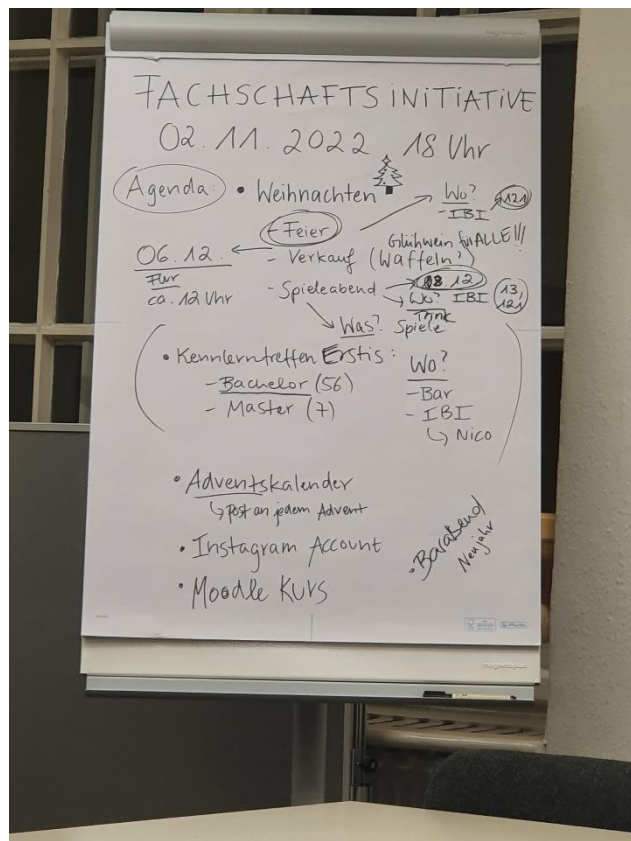 FACHSCHAFTSINITIATIVE
02.11.2022 18 Uhr
Agenda: • Weihnachten
Wo?
- IBI 121
- Feier
Glühwein für ALLE!!!
06.12.
Flur
ca. 12 Uhr
- Verkauf (Waffeln?)
- Spieleabend 08.12
Wo? IBI 13, 121
Was? Trink Spiele
• Kennlerntreffen Erstis:
- Bachelor (56)
- Master (7)
Wo?
- Bar
- IBI
Nico
• Adventskalender
Post an jedem Advent
• Instagram Account
• Moodle Kurs
• Barabend
Neujahr